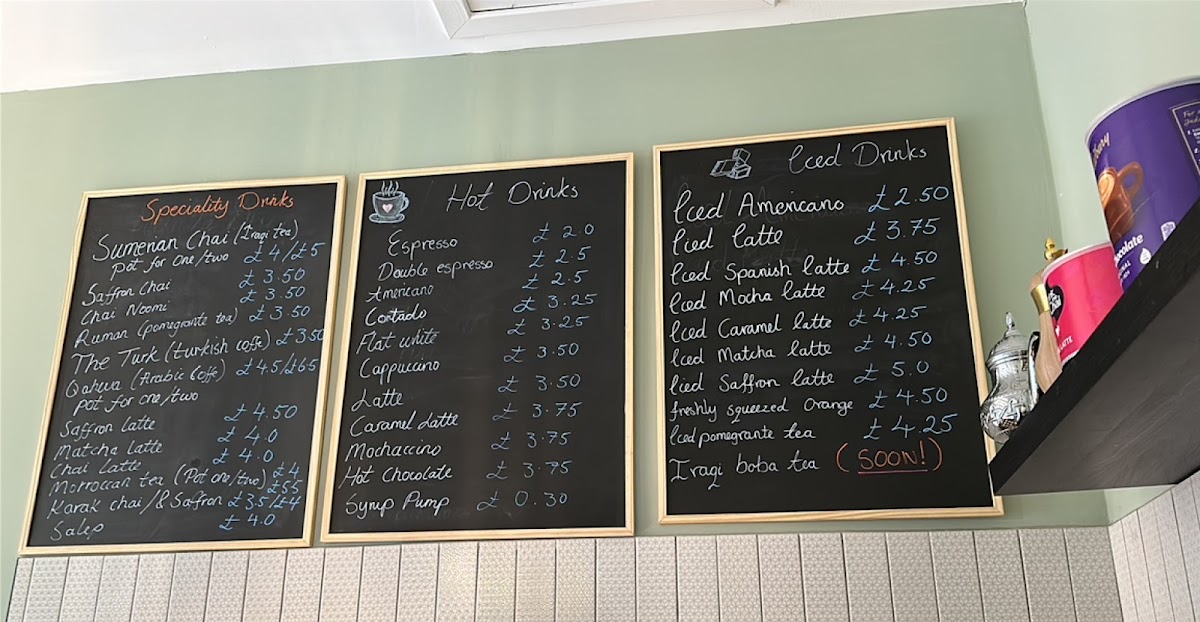 Speciality Drinks
Sumerian Chai (Iraqi tea)
pot for one/two £4/£5
Saffron Chai £3.50
Chai Noomi £3.50
Ruman (pomegrante tea) £3.50
The Turk (turkish coffe) £3.50
Qahwa (Arabic Coffe) £4.5/£6.5
pot for one/two
Saffron latte £4.50
Matcha latte £4.0
Chai latte £4.0
Morroccan tea (Pot one/two) £4
£5.5
Karak chai/& Saffron £3.5/£4
Salep £4.0
Hot Drinks
Espresso £2.0
Double espresso £2.5
Americano £2.5
Cortado £3.25
Flat white £3.25
Cappuccino £3.50
Latte £3.50
Caramel Latte £3.75
Mochaccino £3.75
Hot Chocolate £3.75
Syrup Pump £0.30
Iced Drinks
Iced Americano £2.50
Iced latte £3.75
Iced Spanish latte £4.50
Iced Mocha latte £4.25
Iced Caramel latte £4.25
Iced Matcha latte £4.50
Iced Saffron latte £5.0
freshly squeezed Orange £4.50
Iced pomegrante tea £4.25
Iraqi boba tea (SOON!)